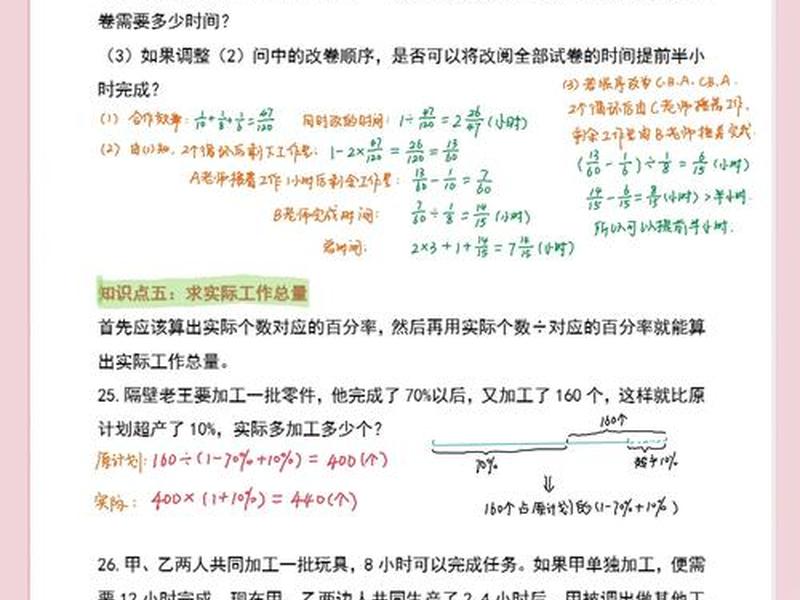 卷需要多少时间？
（3）如果调整（2）问中的改卷顺序，是否可以将改阅全部试卷的时间提前半小
时完成？
(1) 合作效率: 1/10+1/8+1/6=47/120 同时改的时间: 1÷47/120=2 26/47(小时)
(2) 由(1)知, 2个循环后剩下工作量: 1-2×47/120=26/120=13/60
A老师接着工作1小时后剩余工作量: 13/60-1/10=7/60
B老师完成时间: 7/60÷1/8=14/15(小时)
总时间: 2×3+1+14/15=7 14/15(小时)
(3) 若顺序改为C.B.A. C.B.A.
2个循环后由C老师接着工作.
剩余工作量由B老师接着完成.
(13/60-1/6)÷1/8=6/15(小时)
14/15-6/15=8/15(小时)>半小时.
所以可以提前半小时.
知识点五：求实际工作总量
首先应该算出实际个数对应的百分率，然后再用实际个数÷对应的百分率就能算
出实际工作总量。
25. 隔壁老王要加工一批零件，他完成了 70%以后，又加工了 160 个，这样就比原
计划超产了 10%，实际多加工多少个？
160个
70% 10%
原计划: 160÷(1-70%+10%)=400(个)
实际: 400×(1+10%)=440(个)
⇓
160个占原计划的(1-70%+10%)
26. 甲、乙两人共同加工一批玩具，8 小时可以完成任务。如果甲单独加工，便需
要 12 小时完成。现在甲、乙两边人共同生产了 2.4 小时后，甲被调出做其他工